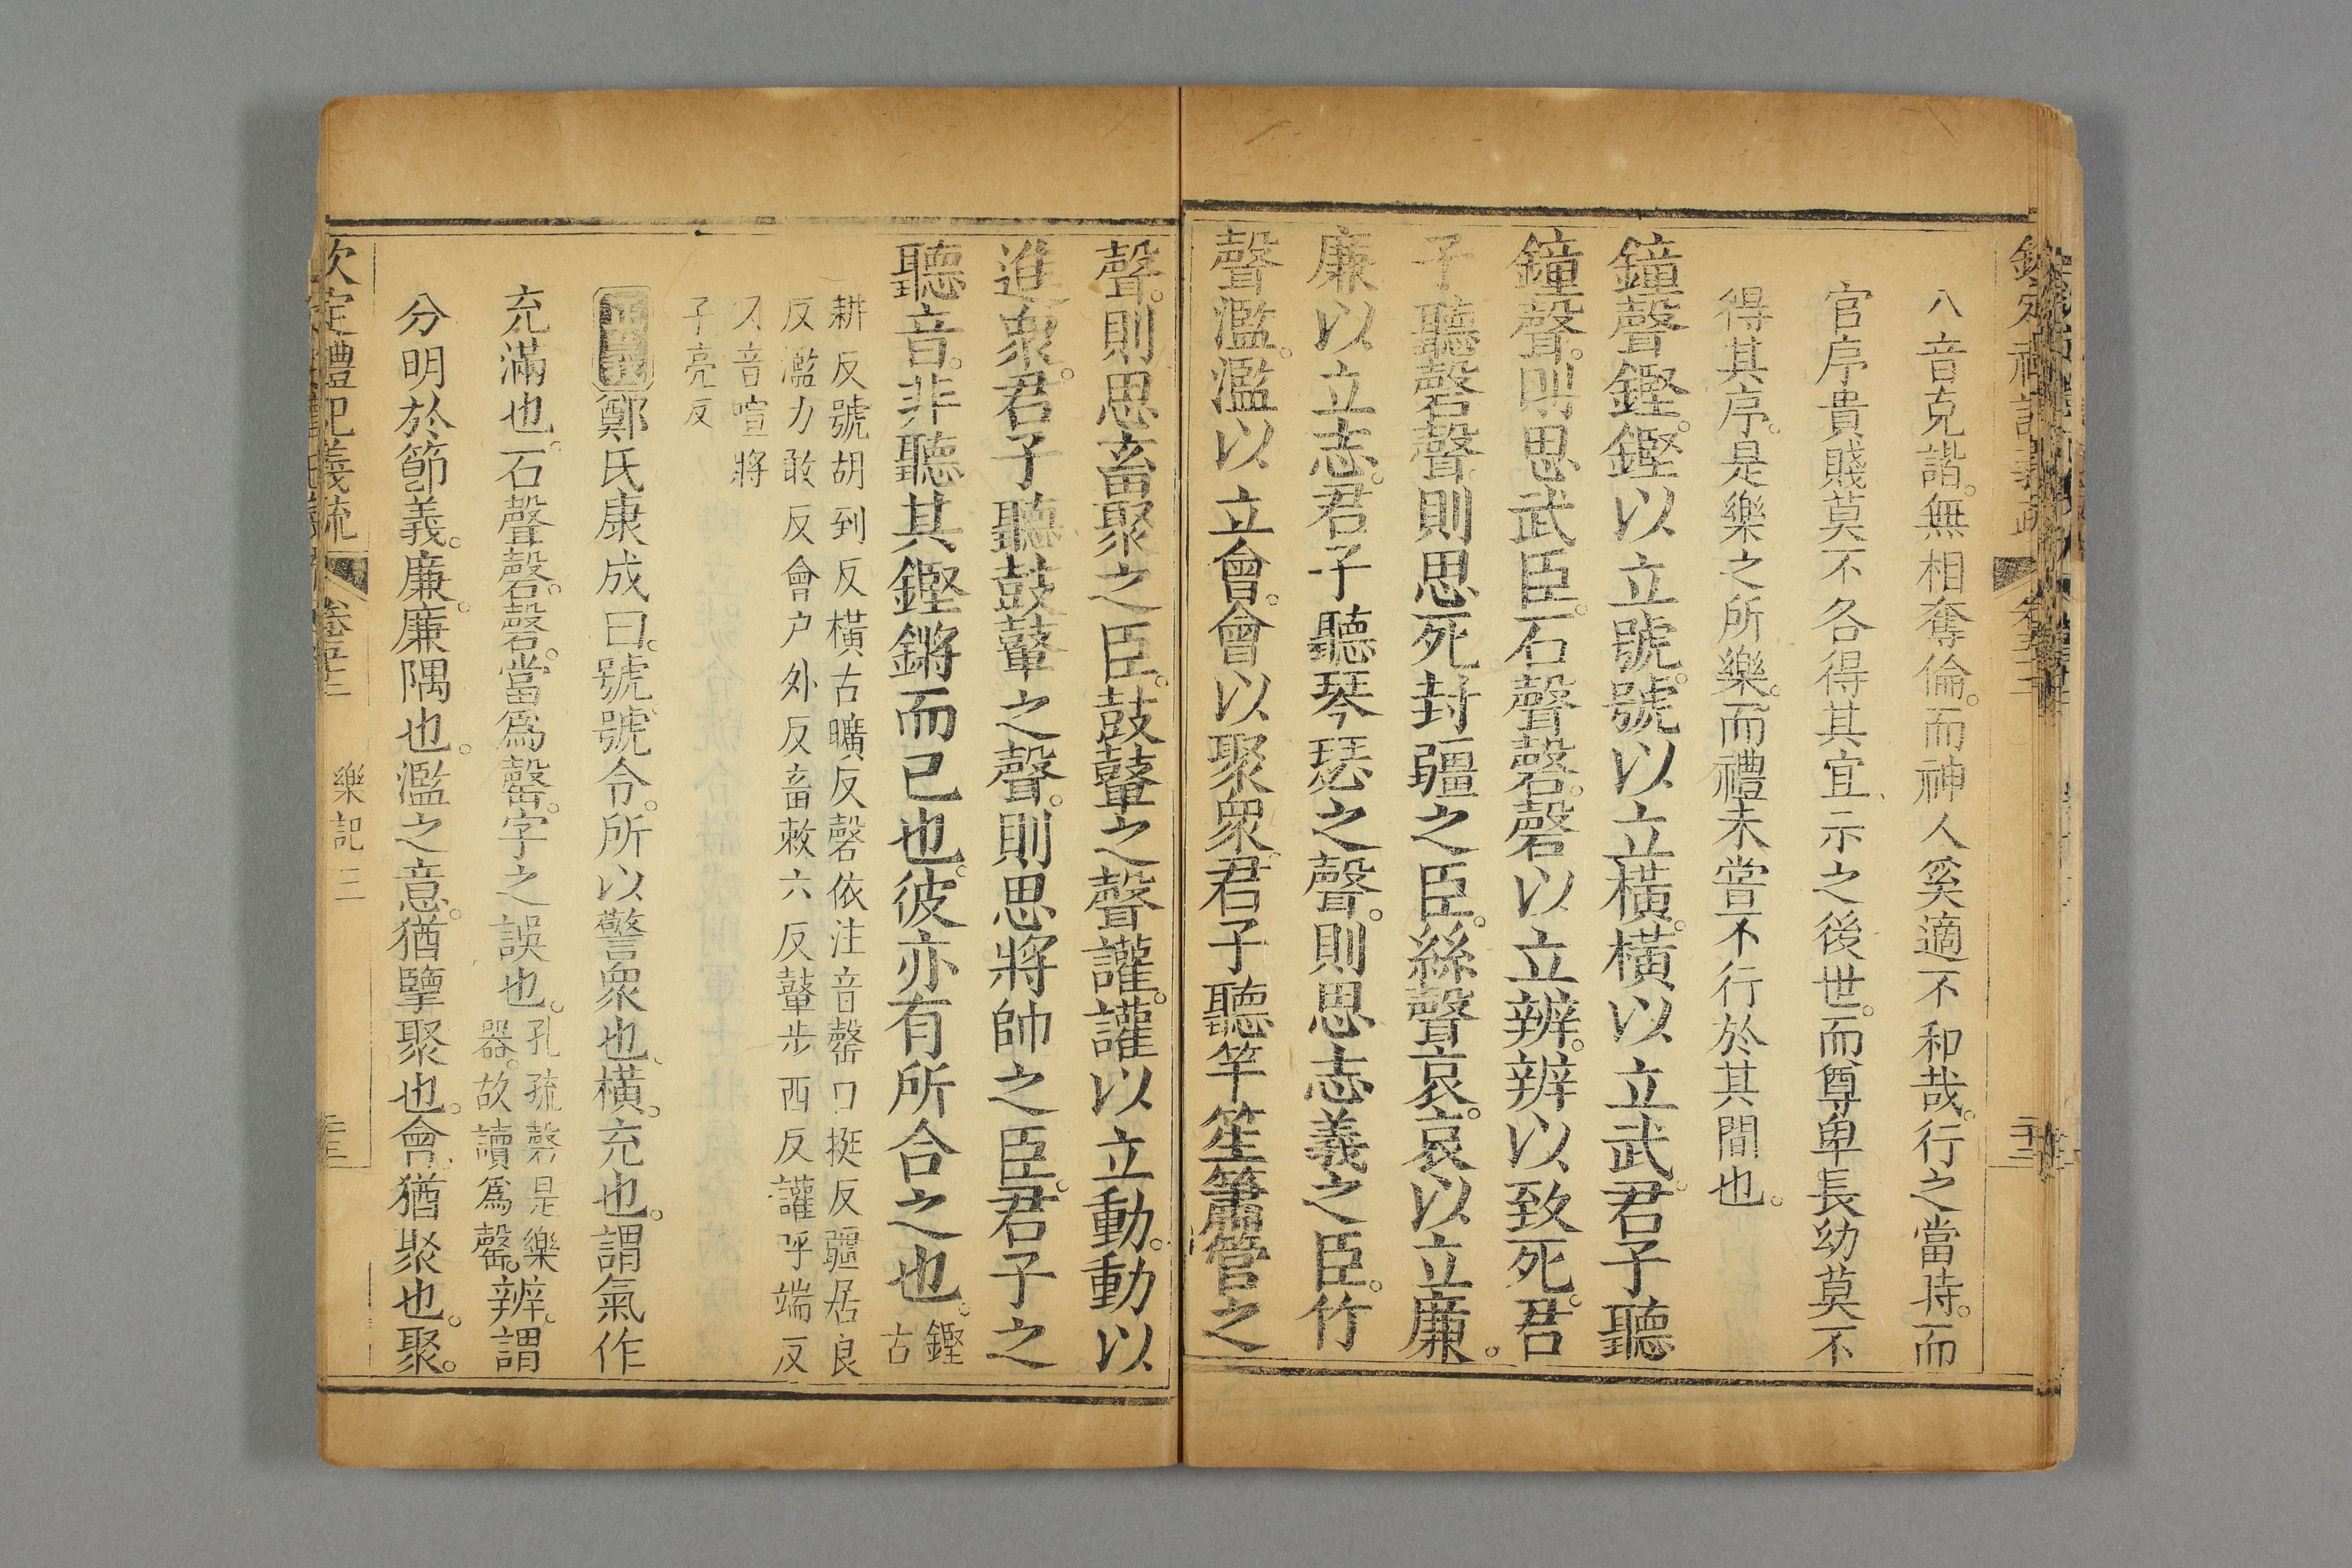 八音克諧。無相奪倫。而神人奚適不和哉。行之當時。而
官序貴賤莫不各得其宜、示之後世。而尊卑長幼莫不
得其序。是樂之所樂。而禮未嘗不行於其間也。
鐘聲鏗。鏗以立號。號以立橫。橫以立武。君子聽
鐘聲。則思武臣。石聲磬。磬以立辨。辨以致死。君
子聽磬聲則思死封疆之臣。絲聲哀。哀以立廉。
廉以立志。君子聽琴瑟之聲。則思志義之臣。竹
聲濫。濫以立會。會以聚眾。君子聽竽笙簫管之
聲。則思畜聚之臣。鼓鼙之聲讙。讙以立動。動以
進眾。君子聽鼓鼙之聲。則思將帥之臣。君子之
聽音。非聽其鏗鏘而已也。彼亦有所合之也。鏗
古
耕反號胡到反橫古曠反磬依注音罄口挺反疆居良
反濫力敢反會户外反畜敕六反鼙步西反讙呼端反
又音喧將
子亮反
鄭氏康成曰。號號令。所以警眾也、橫。充也。謂氣作
充滿也。石聲磬。磬。當爲罄。字之誤也。孔疏磬是樂
器。故讀爲罄。辨。謂
分明於節義。廉。廉隅也。濫之意。猶擥聚也。會猶聚也。聚。
欽定禮記義疏 卷五十二 樂記三